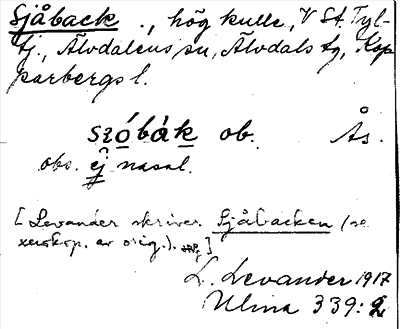 Sjåback ., hög kulle, V St. Tyl-
tj., Älvdalens sn, Älvdals tg, Kop
parbergs l.
szóbák ob. Ås.
obs. ej nasal.
[Levander skriver Sjåbacken (se
xerokop. av orig.).]
L. Levander 1917
Ulma 339:2